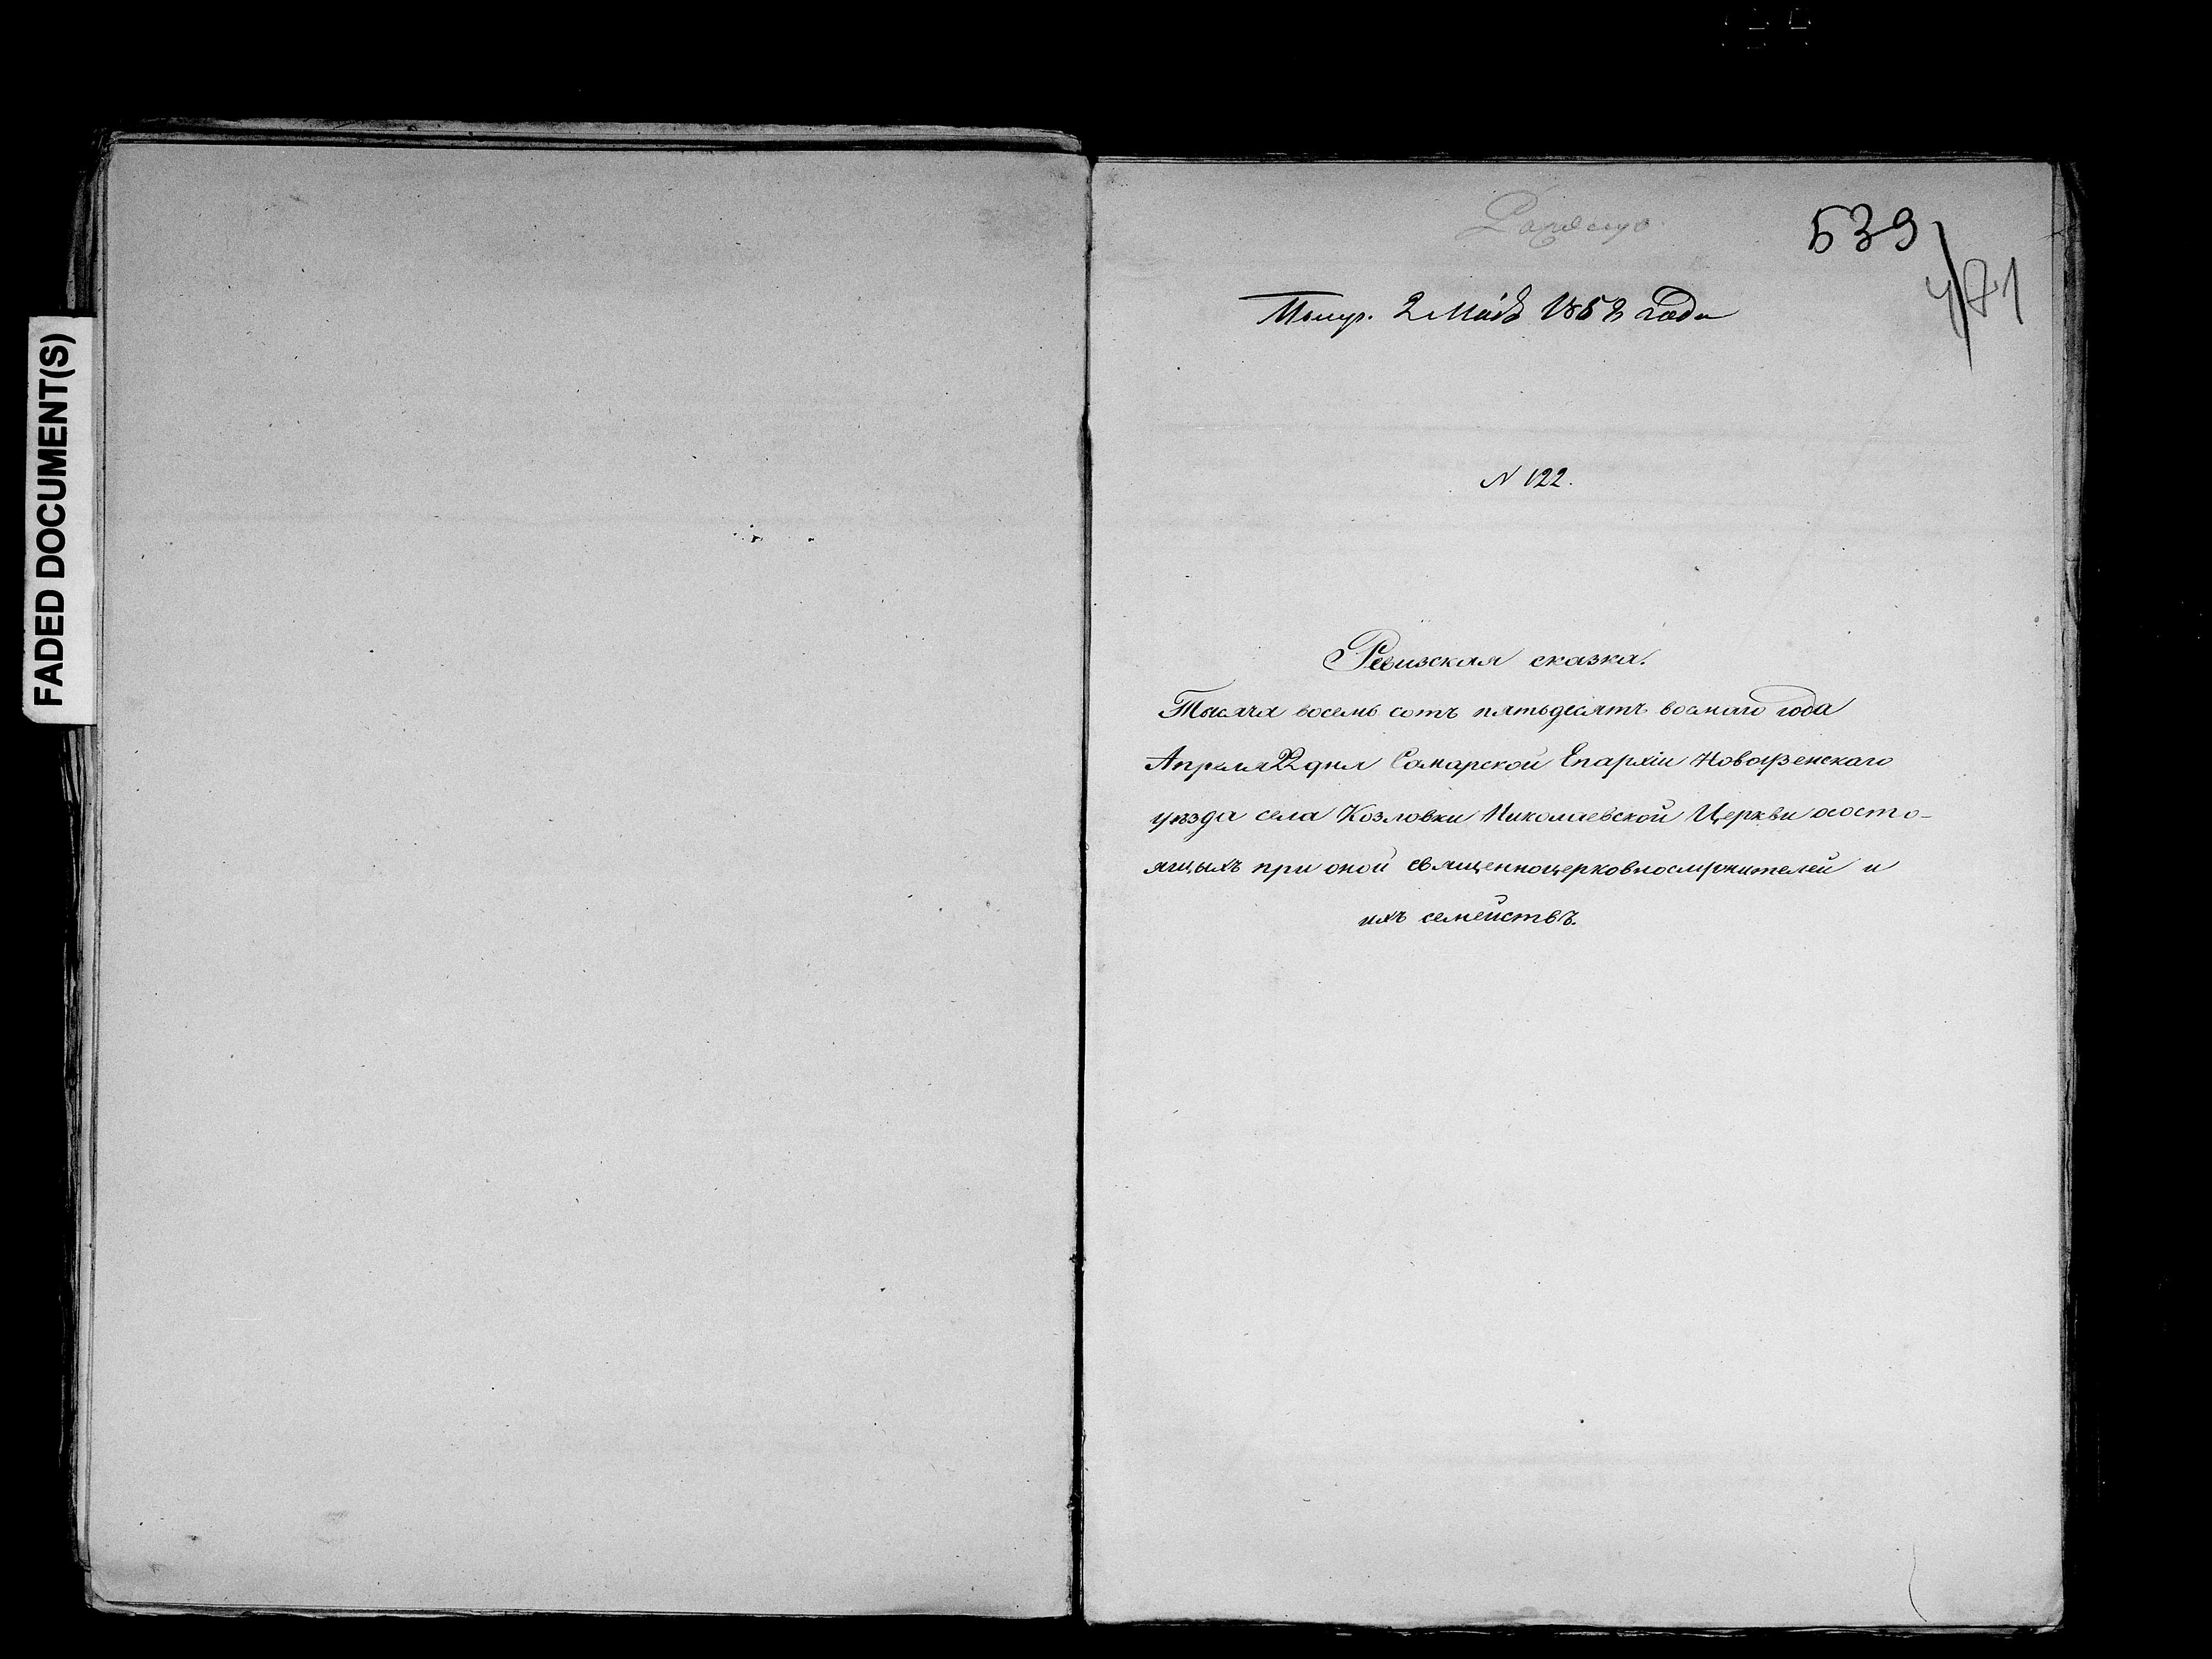 FADED DOCUMENT(S)
539
481
Получ. 2 Маія 1858 года
N 122.
Ревизская сказка.
Тысяча восемь сотъ пятьдесятъ восмаго года
Апреля 22 дня Самарской Епархіи Новоузенскаго
уѣзда села Козловки Николаевской Церкви ососто-
ящыхъ при оной священноцерковнослужителей и
ихъ семействѣ.